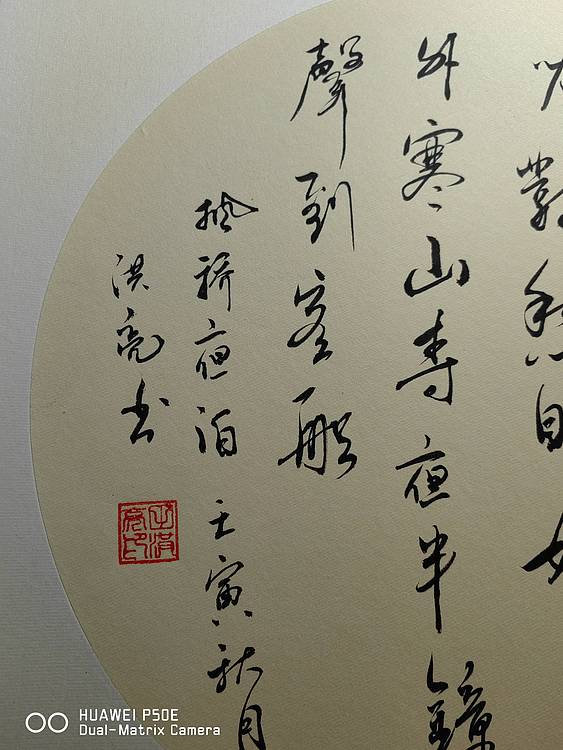 火對愁眠
外寒山寺夜半鐘
聲到客船
枫橋夜泊 壬寅秋月
洪亮书
HUAWEI P50E
Dual-Matrix Camera